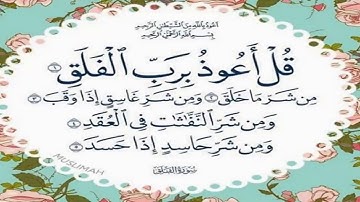 أعوذ بالله من الشيطان الرجيم
بسم الله الرحمن الرحيم
قُلْ أَعُوذُ بِرَبِّ ٱلْفَلَقِ ١
مِن شَرِّ مَا خَلَقَ ٢ وَمِن شَرِّ غَاسِقٍ إِذَا وَقَبَ ٣
وَمِن شَرِّ ٱلنَّفَّـٰثَـٰتِ فِى ٱلْعُقَدِ ٤
وَمِن شَرِّ حَاسِدٍ إِذَا حَسَدَ ٥
سورة الفلق
MUSLIMAH